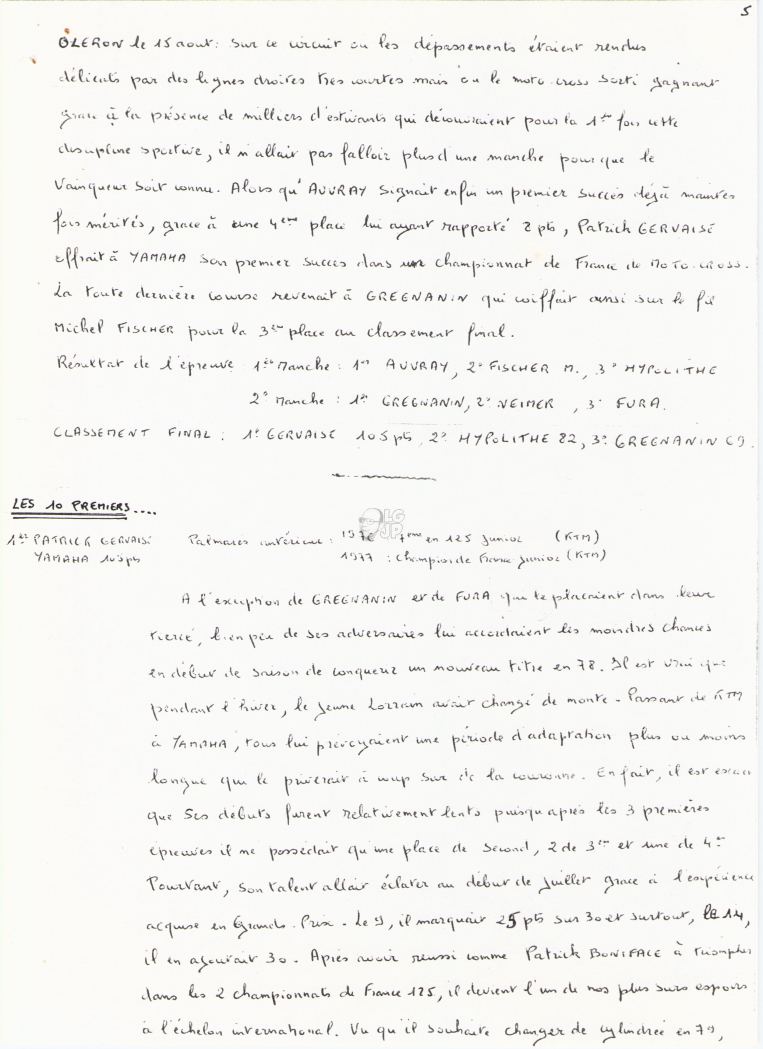 5
OLERON le 15 aout : Sur ce circuit ou les dépassements étaient rendus
délicats par des lignes droites tres courtes mais ou le moto-cross sorti gagnant
grace à la présence de milliers d'estivants qui découvraient pour la 1ère fois cette
discipline sportive, il n'allait pas falloir plus d'une manche pour que le
Vainqueur soit connu. Alors qu'AUVRAY signait enfin un premier succès déjà maintes
fois mérités, grace à une 4ème place lui ayant rapporté 8 pts, Patrick GERVAISE
offrait à YAMAHA son premier succès dans un championnat de France de MOTO-CROSS.
La toute dernière course revenait à GREGNANIN qui coiffait ainsi sur le fil
Michel FISCHER pour la 3ème place au classement final.
Résultat de l'épreuve 1ère Manche : 1er AUVRAY, 2° FISCHER M., 3° HYPOLITHE
2° Manche : 1er GREGNANIN, 2° NEIMER , 3° FURA.
CLASSEMENT FINAL : 1° GERVAISE 105 pts, 2° HYPOLITHE 82, 3° GREGNANIN 69.
LES 10 PREMIERS....
LG
JP
1er PATRICK GERVAISE Palmares antérieur : 1976 7ème en 125 Junior (KTM)
YAMAHA 105 pts 1977 : Champion de France Junior (KTM)
A l'exception de GREGNANIN et de FURA qui le placaient dans leur
tiercé, bien peu de ses adversaires lui accordaient les moindres chances
en début de saison de conquerir un nouveau titre en 78. Il est vrai que
pendant l'hiver, le jeune Lorrain avait changé de monte - Passant de KTM
à YAMAHA, tous lui prévoyaient une période d'adaptation plus ou moins
longue qui le priverait à coup sur de la couronne. En fait, il est exact
que ses débuts furent relativement lents puisqu'après les 3 premières
épreuves il ne possédait qu'une place de second, 2 de 3ème et une de 4ème
Pourtant, son talent allait éclater au début de Juillet grace à l'expérience
acquise en Grands-Prix - Le 9, il marquait 25 pts sur 30 et surtout, le 14,
il en ajoutait 30 - Après avoir reussi comme Patrick BONIFACE à triompher
dans les 2 championnats de France 125, il devient l'un de nos plus surs espoirs
à l'échelon international. Vu qu'il souhaite changer de cylindrée en 79,